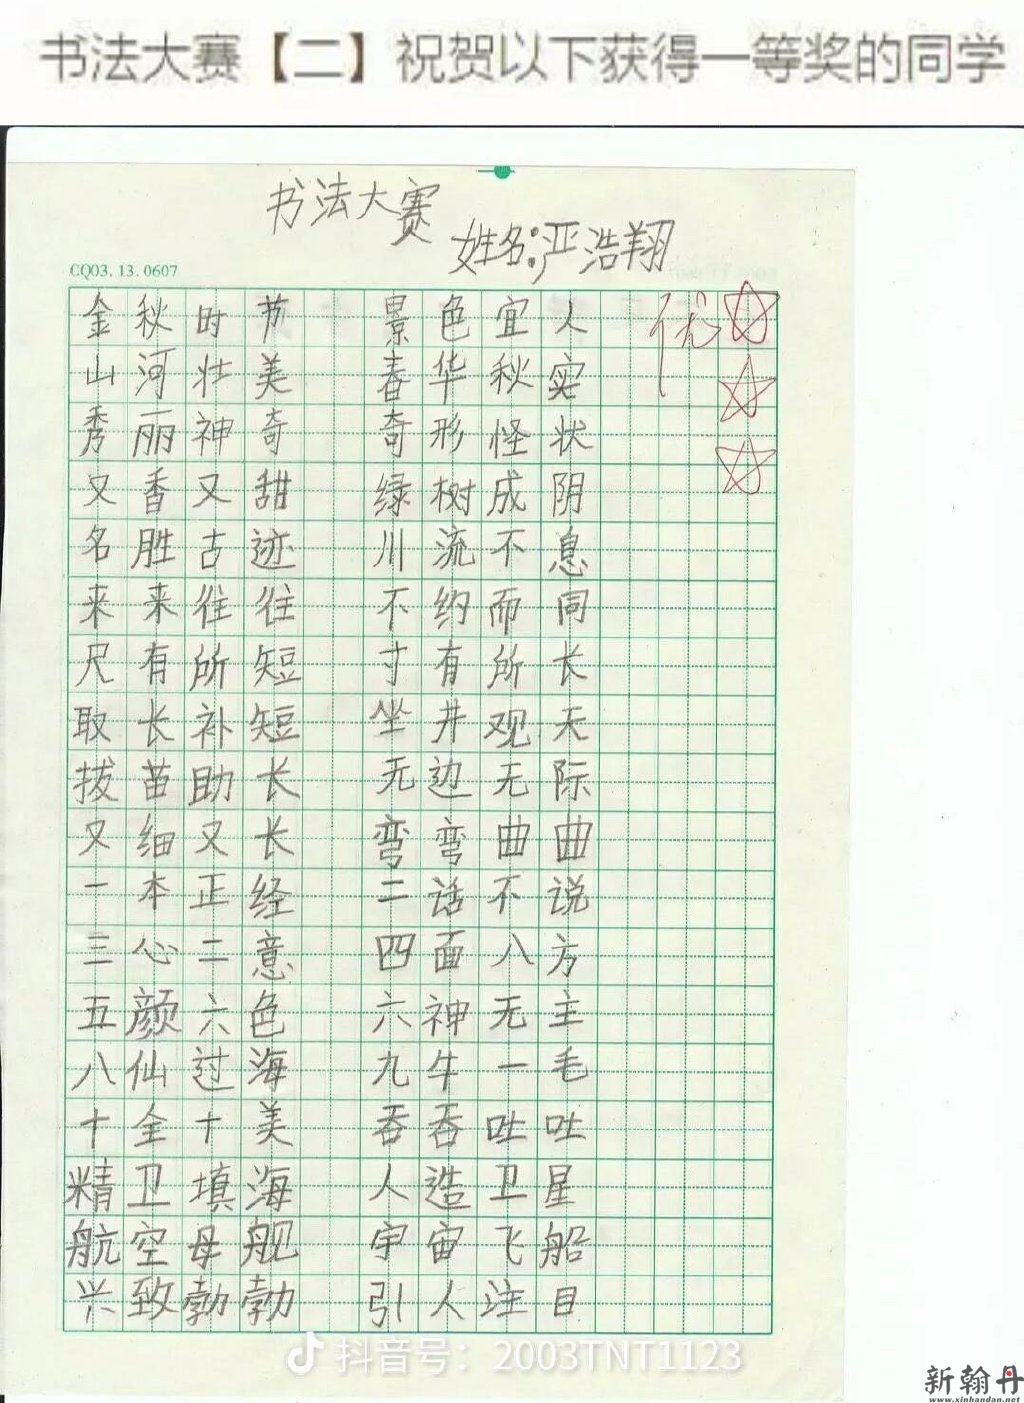 书法大赛【二】祝贺以下获得一等奖的同学
书法大赛
姓名:严浩翔
CQ03.13.0607
金秋时节 景色宜人 优
山河壮美 春华秋实
秀丽神奇 奇形怪状
又香又甜 绿树成阴
名胜古迹 川流不息
来来往往 不约而同
尺有所短 寸有所长
取长补短 坐井观天
拔苗助长 无边无际
又细又长 弯弯曲曲
一本正经 二话不说
三心二意 四面八方
五颜六色 六神无主
八仙过海 九牛一毛
十全十美 吞吞吐吐
精卫填海 人造卫星
航空母舰 宇宙飞船
兴致勃勃 引人注目
抖音号：2003TNT1123
新翰丹
www.xinhandan.net